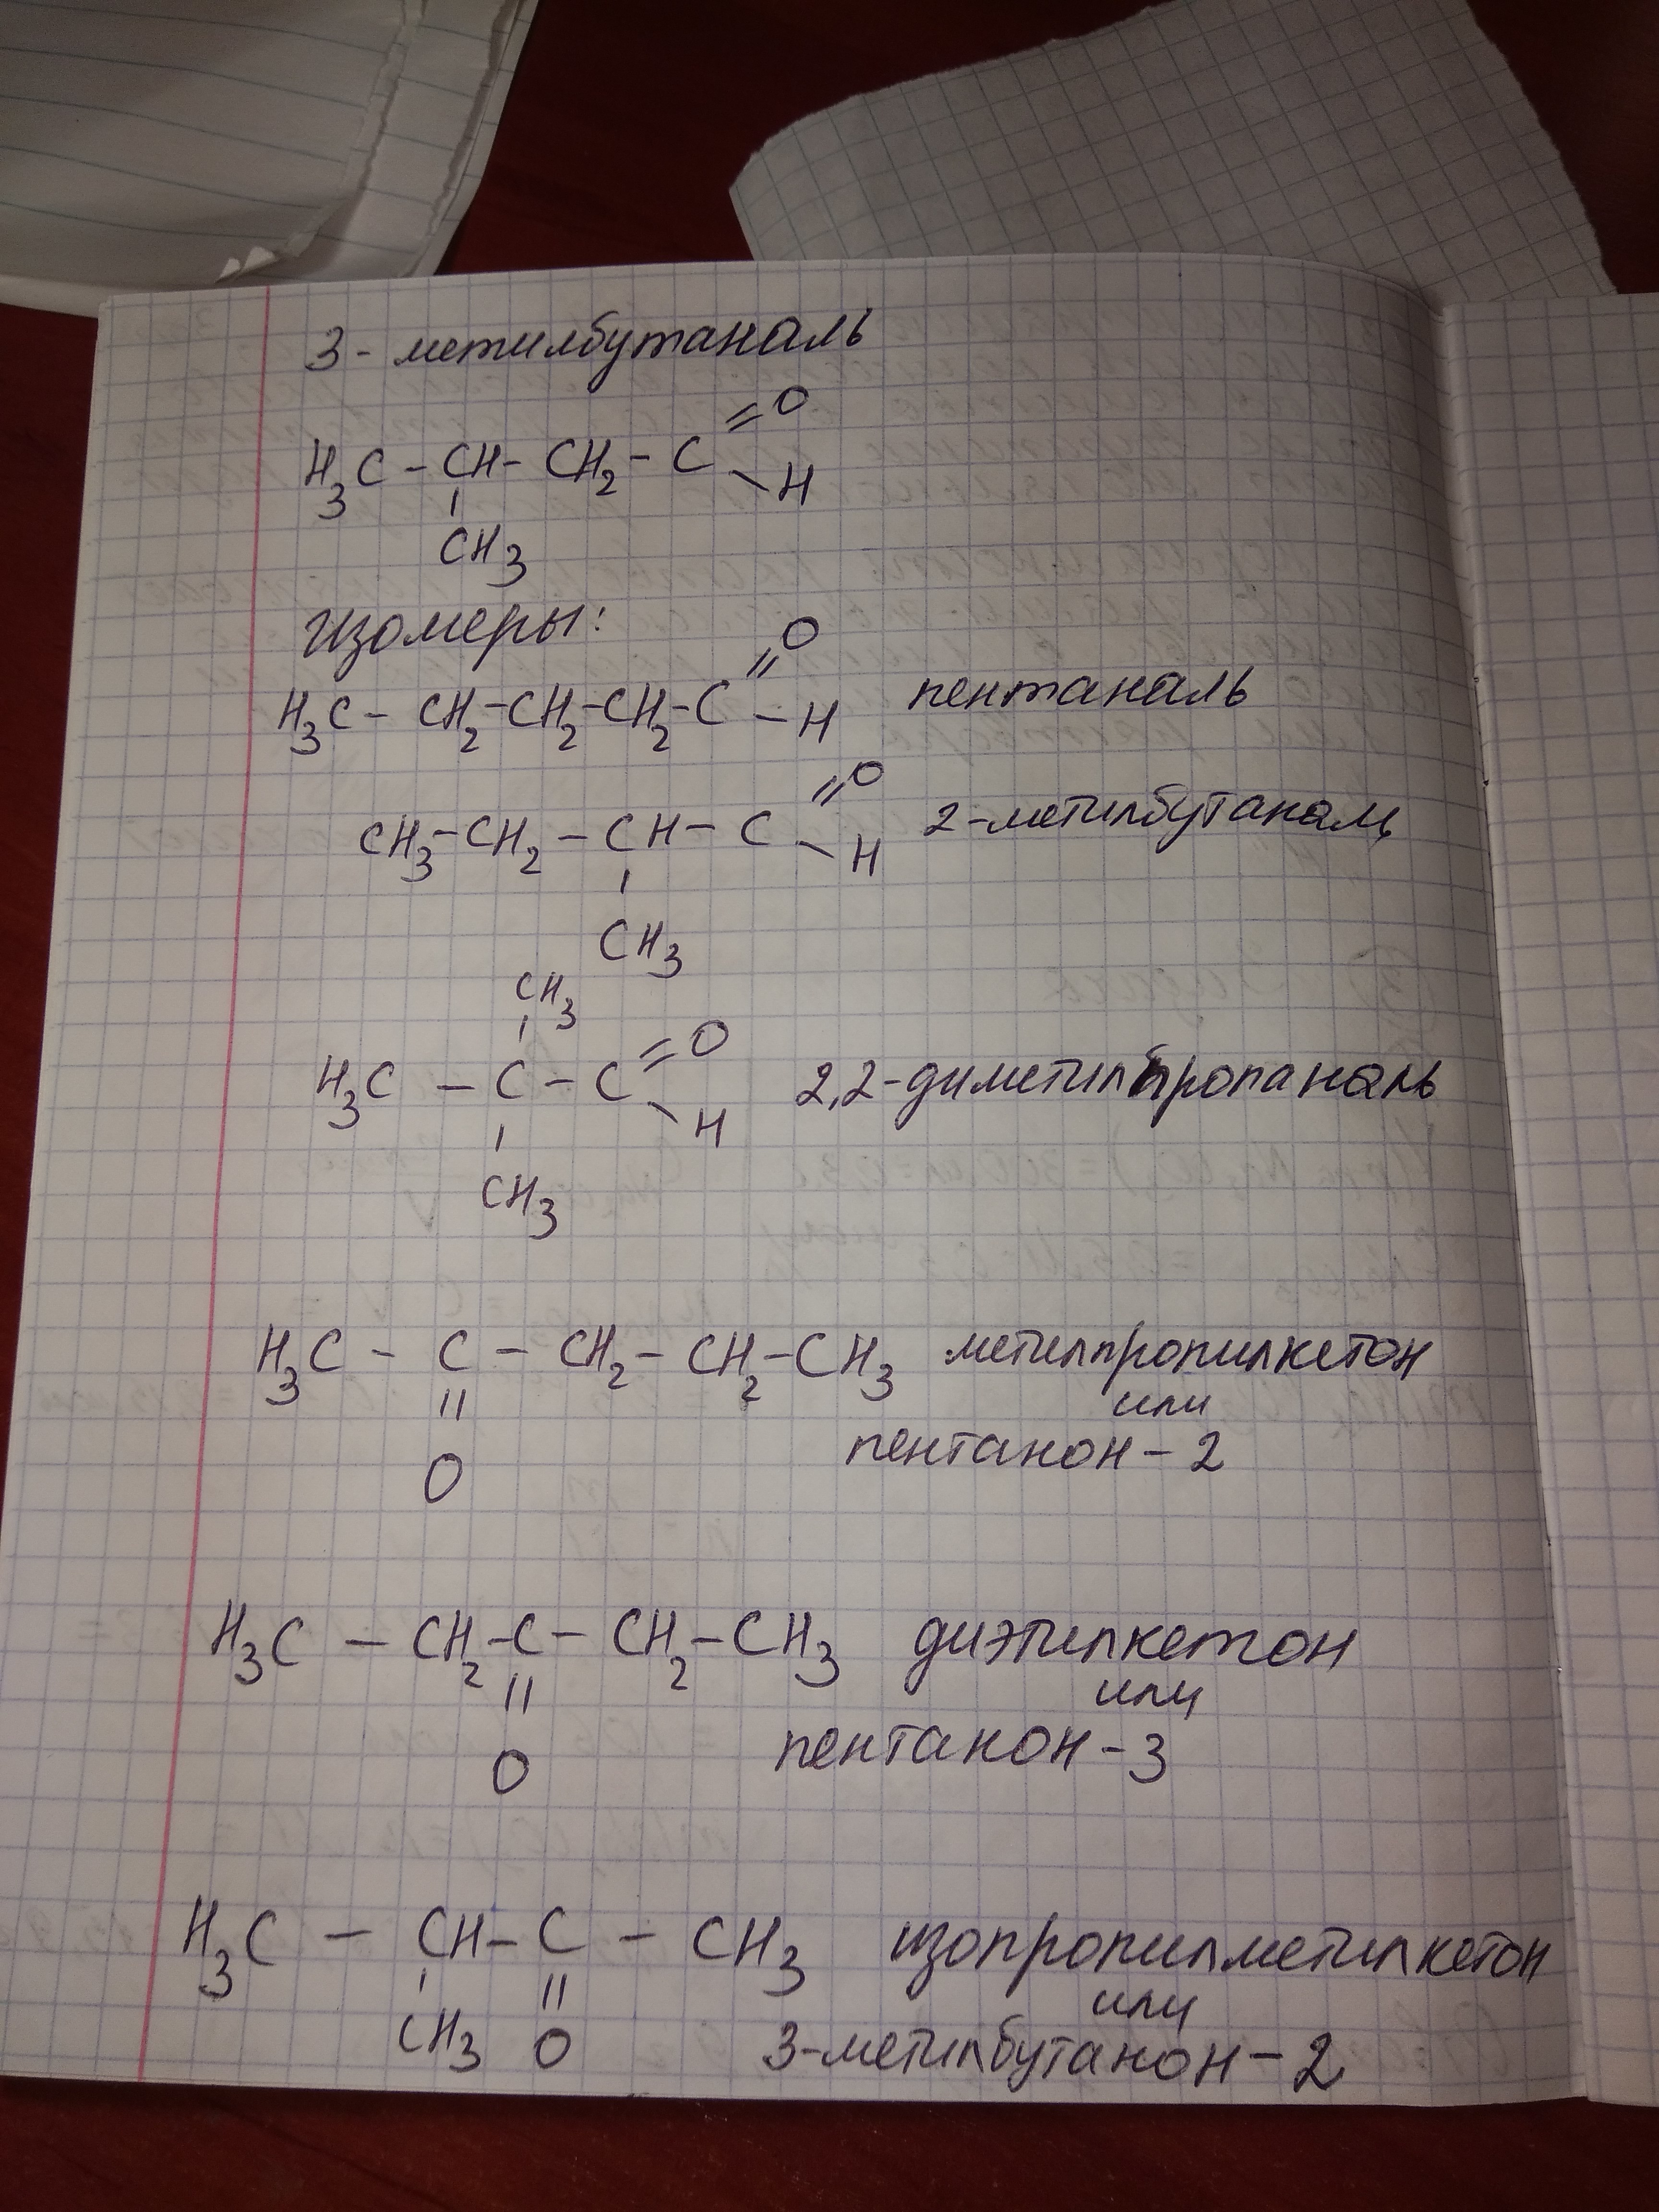 3-метилбутаналь
=O
H3C - CH - CH2 - C
- H
CH3
Изомеры:
=O
H3C - CH2 - CH2 - CH2 - C - H пентаналь
=O
CH3 - CH2 - CH - C - H 2-метилбутаналь
CH3
CH3
=O
H3C - C - C 2,2-диметилпропаналь
- H
CH3
H3C - C - CH2 - CH2 - CH3 метилпропилкетон
|| или
O пентанон-2
H3C - CH2 - C - CH2 - CH3 диэтилкетон
|| или
O пентанон-3
H3C - CH - C - CH3 изопропилметилкетон
|| или
CH3 O 3-метилбутанон-2